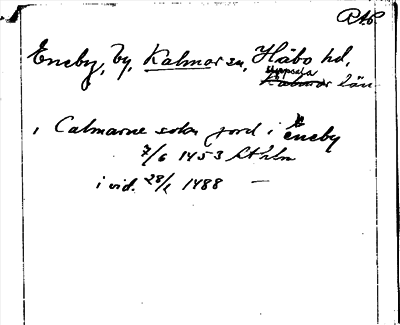 RAp
Eneby, by, Kalmar sn, Håbo hd,
Uppsala
Kalmar län
, Calmarne sokn jord i Eneby
7/6 1453 Sthlm
i vid. 28/1 1488 —